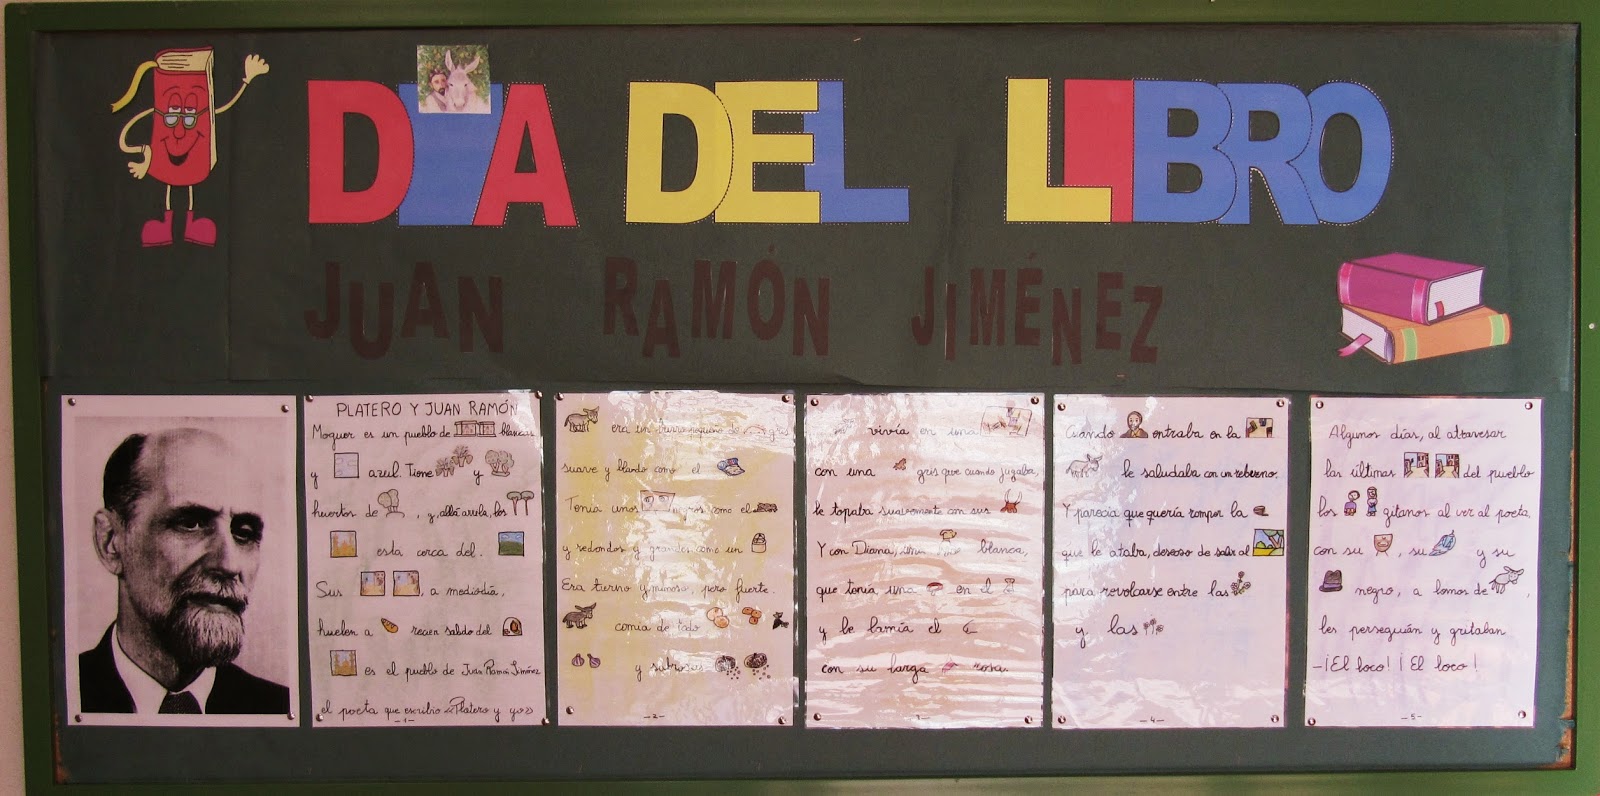 DÍA DEL LIBRO
JUAN RAMÓN JIMÉNEZ
PLATERO Y JUAN RAMÓN
Moguer es un pueblo de blancas
y azul. Tiene y
huertos de , y, allá arriba, los
esta cerca del.
Sus , a mediodía,
huelen a recien salido del
es el pueblo de Juan Ramón Jiménez
el poeta que escribio «Platero y yo»
-1-
era un burro pequeño de gris
suave y blando como el
Tenia unos negros como el
y redondos y grandes como un
Era tierno y mimoso, pero fuerte.
comia de todo
y sabrosas
-2-
vivía en una
con una gris que cuando jugaba,
le topaba suavemente con sus
Y con Diana, una blanca,
que tenía una en el
y le lamía el
con su larga rosa.
-3-
Cuando entraba en la
le saludaba con un rebuzno.
Y parecía que quería romper la
que le ataba, deseoso de salir al
para revolcarse entre las
y las
-4-
Algunos días, al atravesar
las últimas del pueblo
los gitanos al ver al poeta
con su , su y su
negro, a lomos de ,
les perseguían y gritaban
-¡El loco! ¡El loco!
-5-